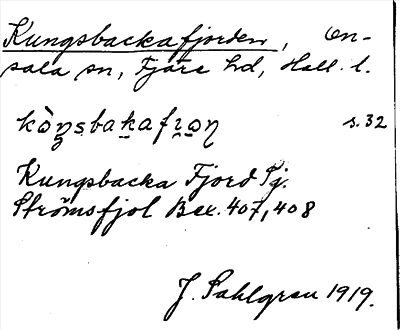 Kungsbackafjorden, On-
sala sn, Fjäre hd, Hall. l.
s. 32
Kungsbacka Fjord Pg.
Strömsfjol Bex. 407, 408
J. Sahlgren 1919.